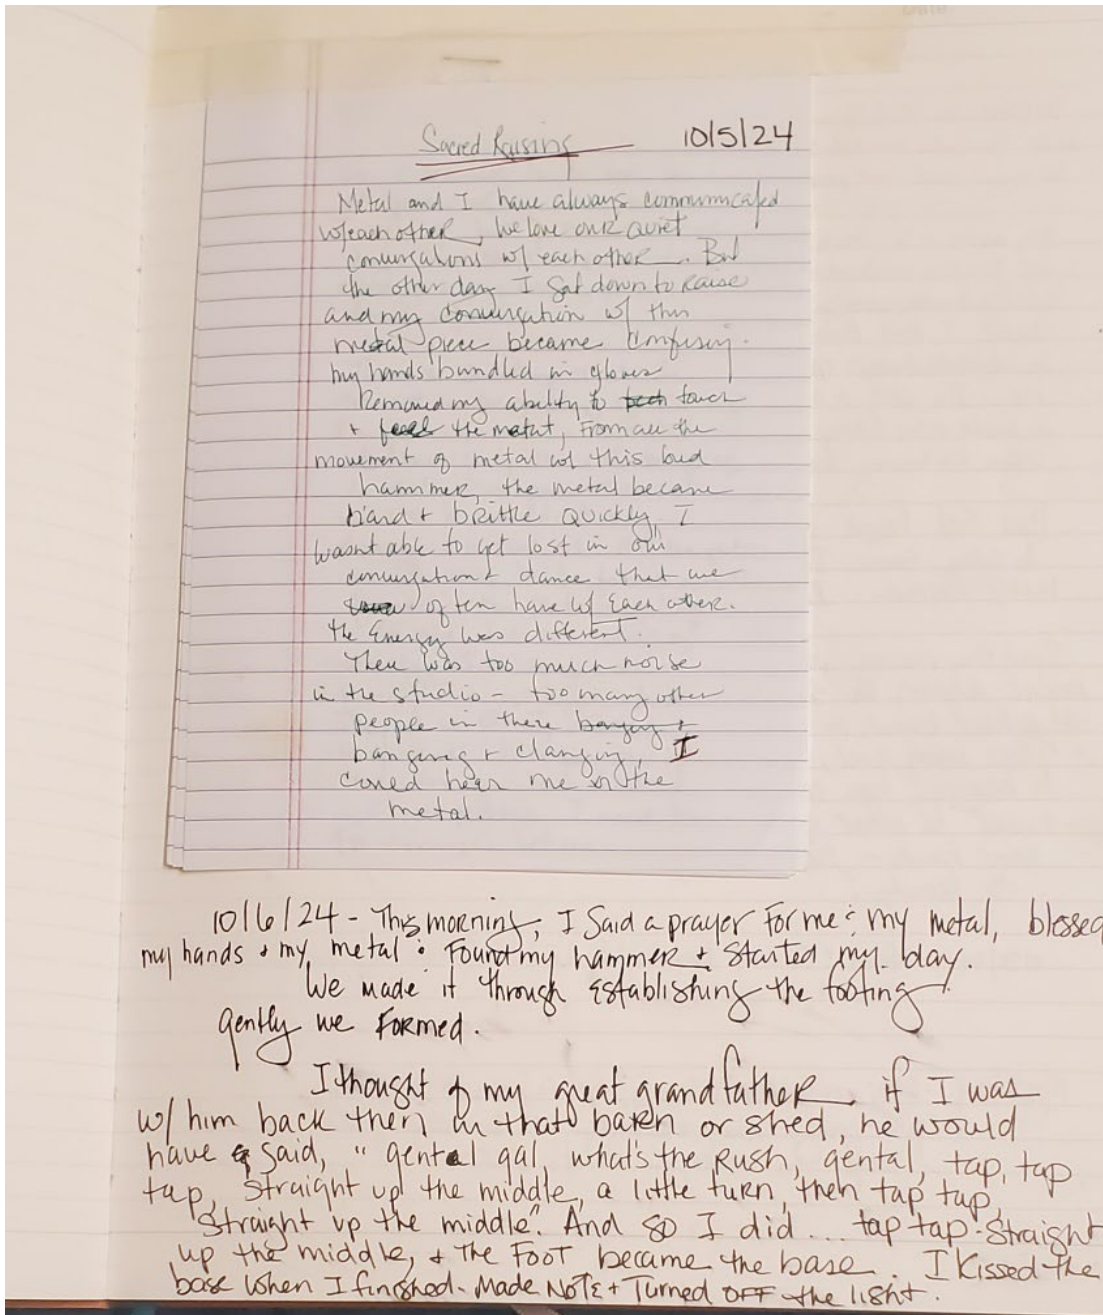 Sacred Raising 10/5/24
Metal and I have always communicated
w/each other, We love our quiet
conversations w/ each other. But
the other day I sat down to raise
and my conversation w/ this
metal piece became confusing.
my hands bundled in gloves
Removed my ability to touch
+ feel the metal, From all the
movement of metal w/ this bud
hammer, the metal became
hard + brittle quickly, I
wasnt able to get lost in our
conversation + dance that we
often have w/ each other.
the Energy was different.
There was too much noise
in the studio - too many other
people in there banging +
banging + clanging, I
could hear me or the
metal.
10/6/24 - This morning, I said a prayer for me & my metal, blessed
my hands + my metal & Found my hammer + started my day.
We made it through establishing the footing
gently we Formed.
I thought of my great grandfather, if I was
w/ him back then in that barn or shed, he would
have said, "gental gal, what's the Rush, gental, tap, tap
tap, straight up the middle, a little turn, then tap tap,
straight up the middle". And so I did... tap tap - straight
up the middle, + The FOOT became the base. I kissed the
base when I finished. Made NOTE + Turned OFF the light.